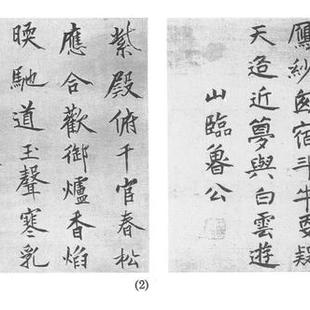 鴈紗窗宿斗牛更疑
天道近夢與白雲遊
山臨魯公
紫殿俯千官春松
應合歡御爐香焰
暖馳道玉聲寒乳
(2)